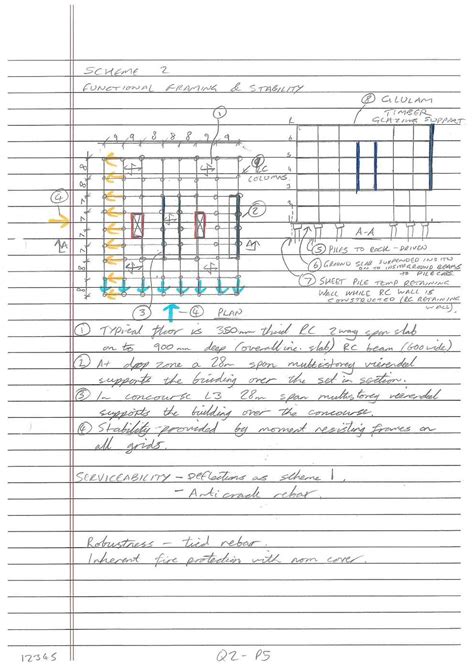 SCHEME 2
FUNCTIONAL FRAMING & STABILITY
① 
⑧ GLULAM
TIMBER
GLAZING SUPPORT
9 9 8 8 8 9 9
④ RC
COLUMNS
④
②
A
A
A-A
⑤ PILES TO ROCK - DRIVEN
⑥ GROUND SLAB SUSPENDED
TO PILE CAPS
⑦ SHEET PILE TEMP RETAINING
WALL WHILE RC WALL IS
CONSTRUCTED (RC RETAINING
WALL)
③ ④ PLAN
① Typical floor is 350mm thick RC 2 way span slab
on to 900mm deep (overall inc. slab) RC beam (600 wide)
② At drop zone a 28m span multistorey vierendeel
supports the building over the set in section.
③ In concourse L3 28m span multistorey vierendeel
supports the building over the concourse.
④ Stability provided by moment resisting frames on
all grids.
SERVICEABILITY - Deflections as scheme 1.
- Anti crack rebar.
Robustness - tied rebar.
Inherent fire protection with nom cover.
12345
Q2-P5